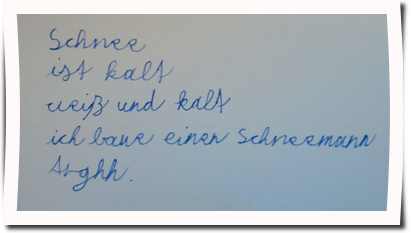 Schnee
ist kalt
weiß und kalt
ich baue einen Schneemann
Arghh.